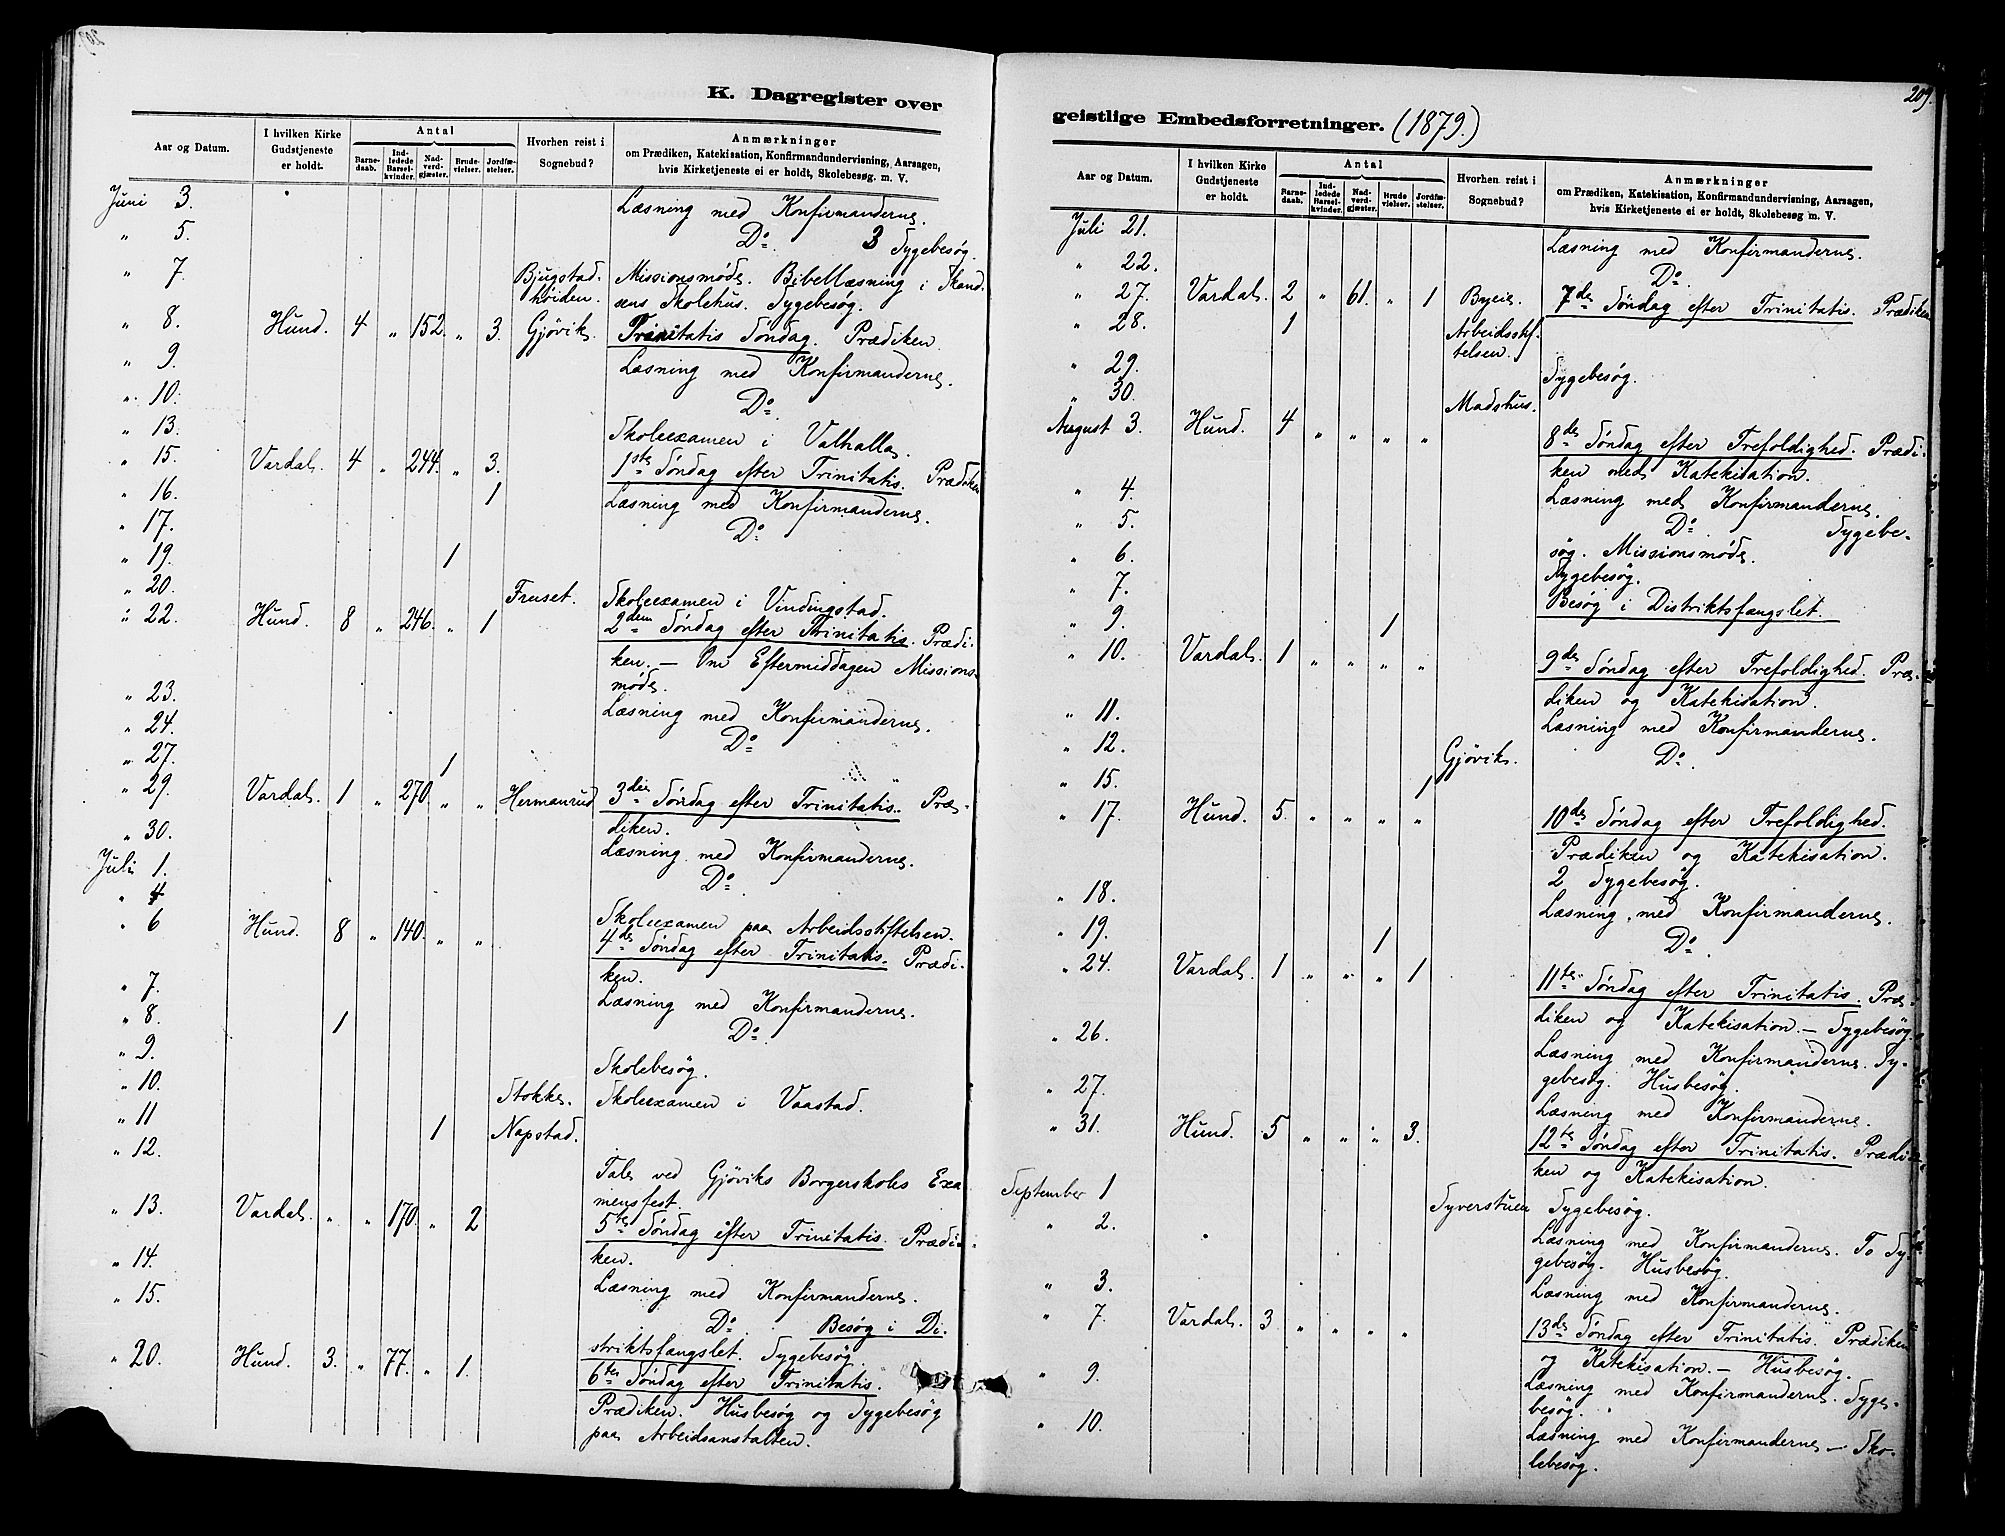 K. Dagregister over
Aar og Datum.
I hvilken Kirke Gudstjeneste er holdt.
Antal
Barnedaab.
Indledede Barselkvinder.
Nadverdgjæster.
Brudevielser.
Jordfæstelser.
Hvorhen reist i Sognebud?
Anmærkninger
om Prædiken, Katekisation, Konfirmandundervisning, Aarsagen,
hvis Kirketjeneste ei er holdt, Skolebesøg. m. V.
Juni 3. Læsning med Konfirmanderne.
" 5. Do. 3 Sygebesøg.
" 7. Bjugstad- Missionsmøde. Bibellæsning i Skand
høiden. ens Skolehus. Sygebesøg.
" 8. Hund. 4 " 152. " 3. Gjøvik. Trinitatis Søndag. Prædiken.
" 9. Læsning med Konfirmanderne.
" 10. Do.
" 13. Skoleexamen i Valhalla.
" 15. Vardal. 4 " 244. " 3. 1ste Søndag efter Trinitatis. Prædiken
" 16. 1 Læsning med Konfirmanderne.
" 17. Do.
" 19. 1
" 20. Fruset. Skoleexamen i Vindingstad.
" 22. Hund. 8 " 246. " 1 2den Søndag efter Trinitatis. Prædi-
ken. — Om Eftermiddagen Missions-
møde.
" 23. Læsning med Konfirmanderne.
" 24. Do.
" 27. 1
" 29. Vardal. 1 " 270. " " Hermanrud 3die Søndag efter Trinitatis. Præ-
diken.
" 30. Læsning med Konfirmanderne.
Juli 1. Do.
" 4 Skoleexamen paa Arbeidsstiftelsen.
" 6 Hund. 8 " 140. " " 4de Søndag efter Trinitatis. Prædi-
ken.
" 7. Læsning med Konfirmanderne.
" 8. 1 Do.
" 9. Skolebesøg.
" 10. Stokke. Skoleexamen i Vaastad.
" 11 1 Napstad.
" 12. Tale ved Gjøviks Borgerskoles Exa
mensfest.
" 13. Vardal. " " 170. " 2 5te Søndag efter Trinitatis. Prædi-
ken.
" 14. Læsning med Konfirmanderne.
" 15. Do. Besøg i Di-
striktsfængslet. Sygebesøg.
" 20. Hund. 3. " 77. " 1. 6te Søndag efter Trinitatis.
Prædiken. Husbesøg og Sygebesøg
paa Arbeidsanstalten.
209.
geistlige Embedsforretninger. (1879.)
Aar og Datum.
I hvilken Kirke Gudstjeneste er holdt.
Antal
Barnedaab.
Indledede Barselkvinder.
Nadverdgjæster.
Brudevielser.
Jordfæstelser.
Hvorhen reist i Sognebud?
Anmærkninger
om Prædiken, Katekisation, Konfirmandundervisning, Aarsagen,
hvis Kirketjeneste ei er holdt, Skolebesøg m. V.
Juli 21. Læsning med Konfirmanderne.
" 22. Do.
" 27. Vardal. 2 " 61. " 1 Byeie. 7de Søndag efter Trinitatis. Prædiken
" 28. 1 Arbeidsstif-
telsen.
" 29. Sygebesøg.
" 30. Madshus.
August 3. Hund. 4 " " " " 8de Søndag efter Trefoldighed. Prædi-
ken med Katekisation.
" 4. Læsning med Konfirmanderne.
" 5. Do. Sygebe-
søg. Missionsmøde.
" 6. Sygebesøg.
" 7. Besøg i Distriktsfængslet.
" 9. 1
" 10. Vardal. 1 " " " " 9de Søndag efter Trefoldighed. Præ-
diken og Katekisation.
" 11. Læsning med Konfirmanderne.
" 12. Gjøvik. Do.
" 15. 1
" 17. Hund. 5. " " " " 10de Søndag efter Trefoldighed.
Prædiken og Katekisation.
2 Sygebesøg.
" 18. Læsning med Konfirmanderne.
" 19. 1 Do.
" 24. Vardal. 1 " " " 1 11te Søndag efter Trinitatis. Præ-
diken og Katekisation. — Sygebesøg.
" 26. Læsning med Konfirmanderne. Sy-
gebesøg. Husbesøg.
" 27. Læsning med Konfirmanderne.
" 31. Hund. 5 " " " 3. 12te Søndag efter Trinitatis. Prædi-
ken og Katekisation.
September 1 Syverstuen Sygebesøg.
" 2. Læsning med Konfirmanderne. To Sy-
gebesøg. Husbesøg.
" 3. Læsning med Konfirmanderne.
" 7. Vardal. 3 " " " " 13de Søndag efter Trinitatis. Prædiken
og Katekisation. — Husbesøg.
" 9. Læsning med Konfirmanderne. Syge-
besøg.
" 10. Læsning med Konfirmanderne — Sko-
lebesøg.